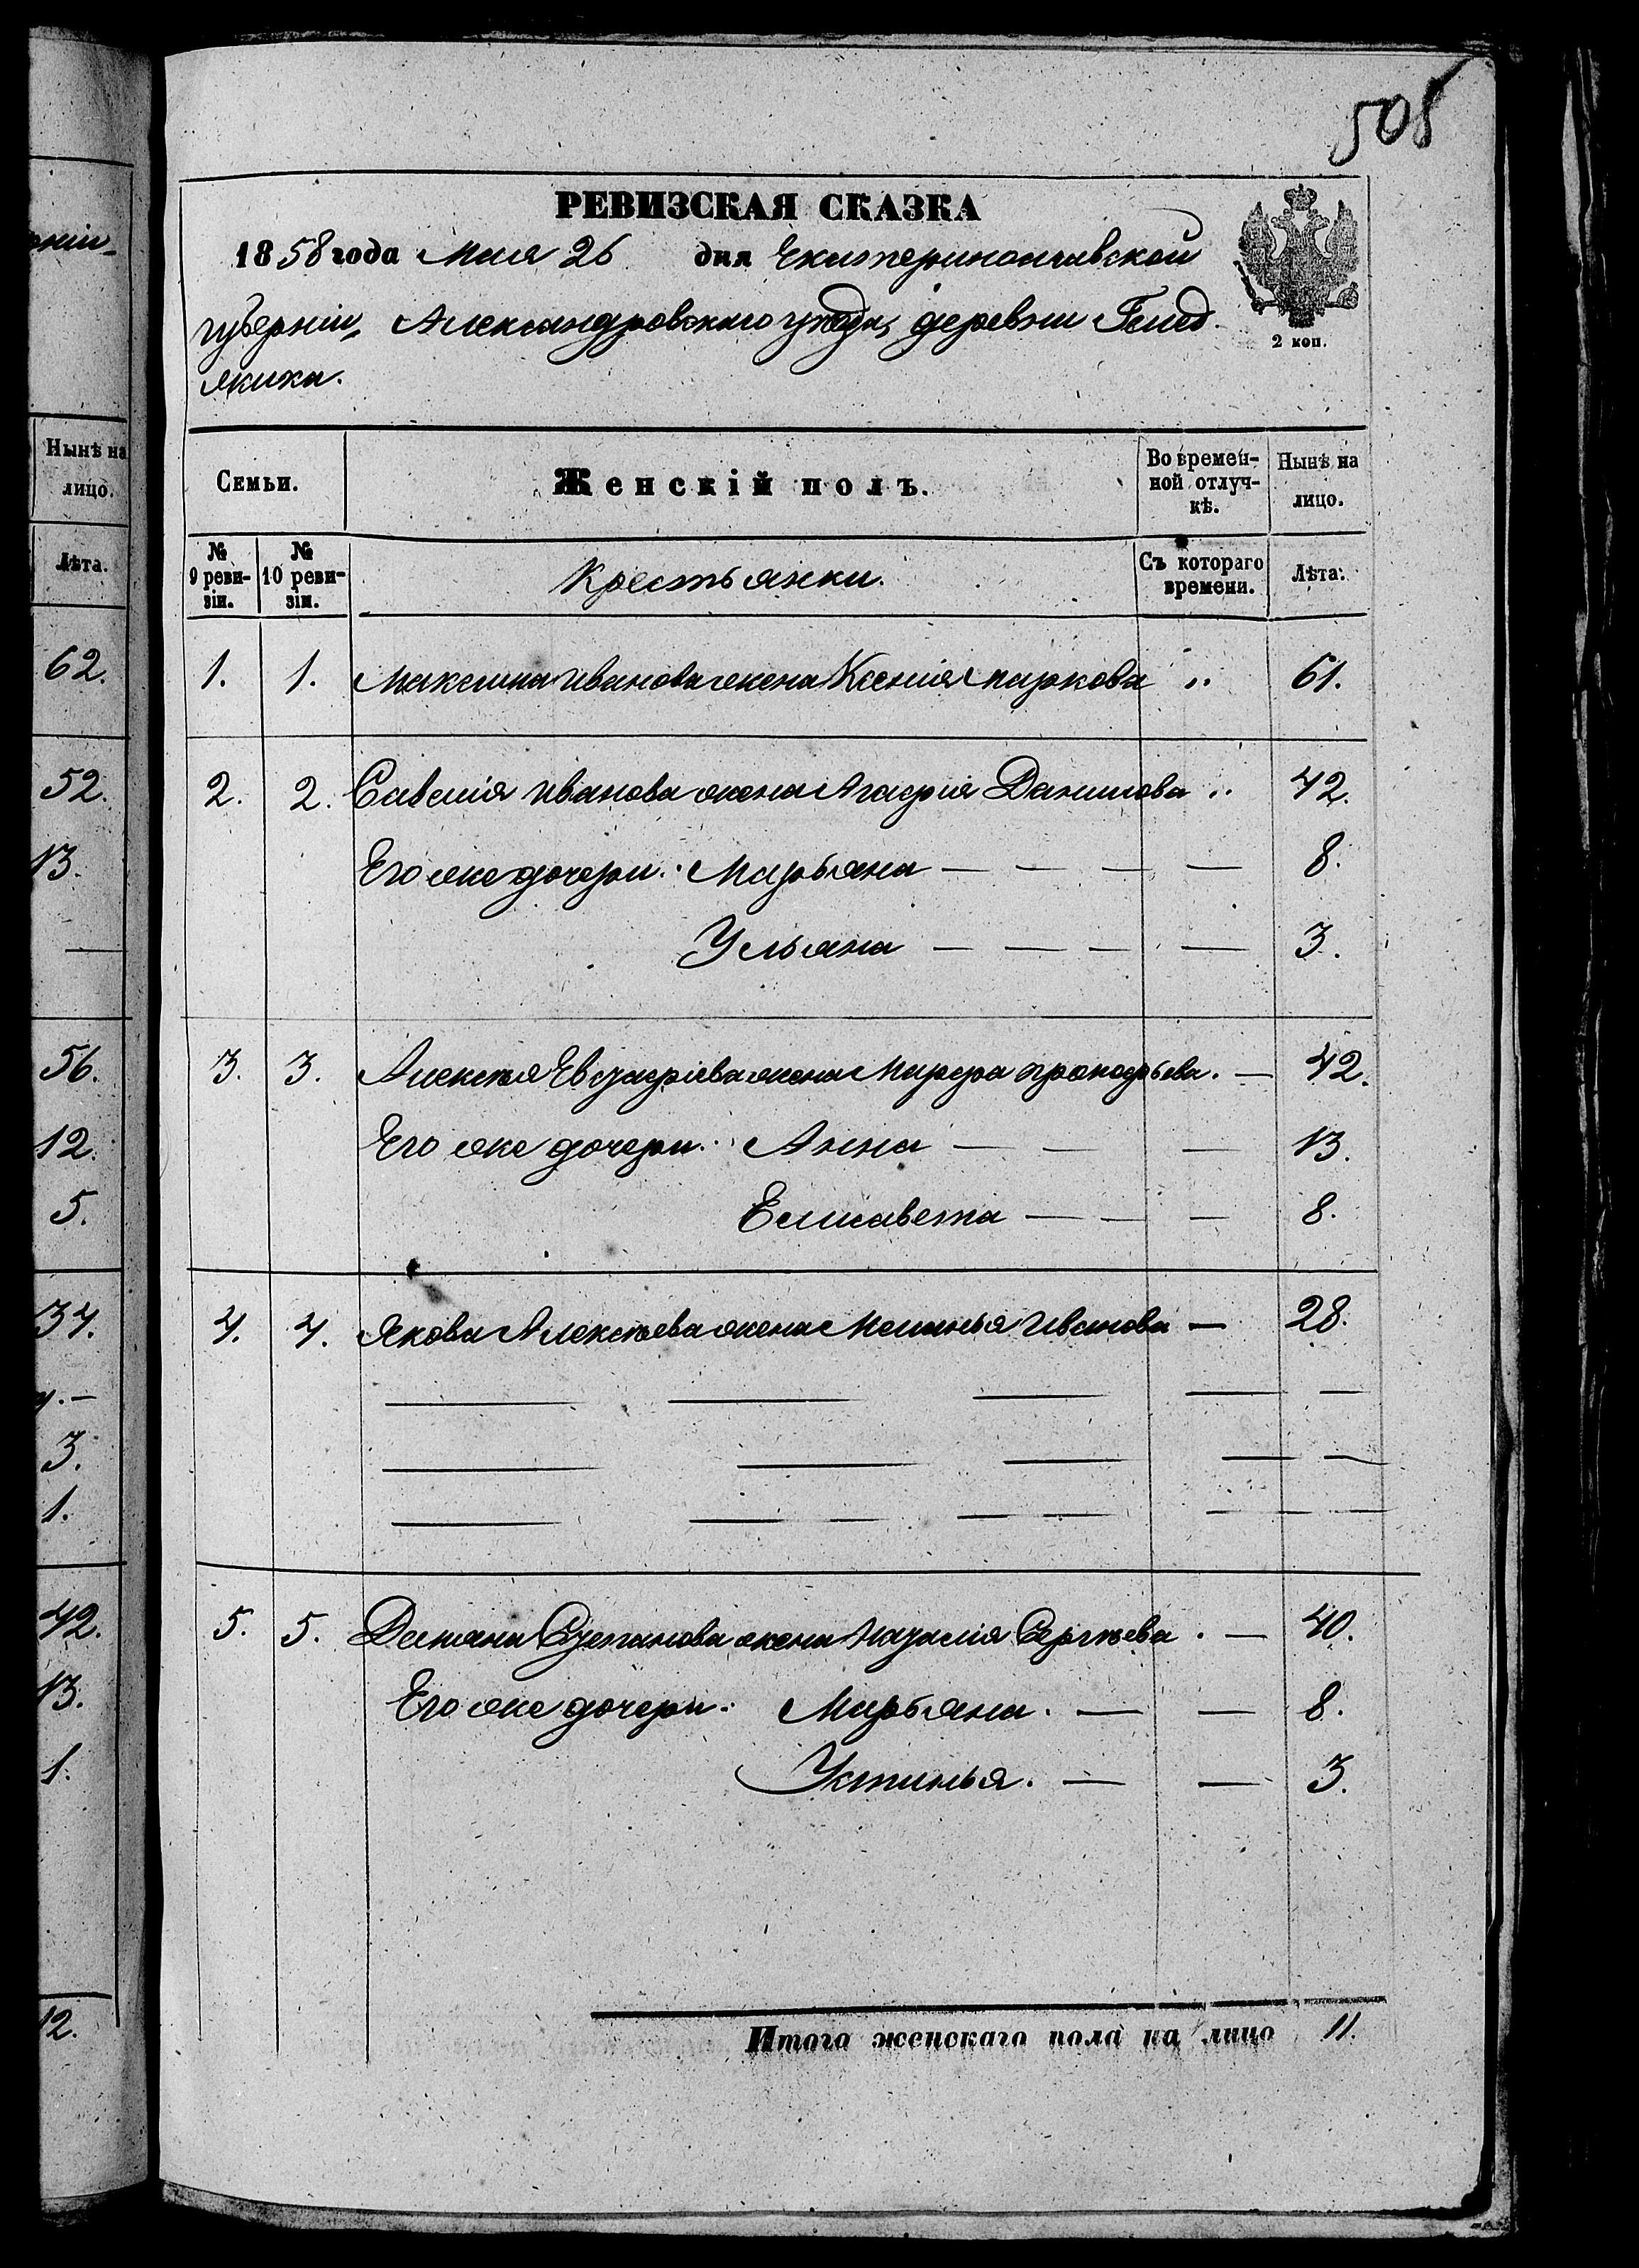 505
РЕВИЗСКАЯ СКАЗКА
1858 года Мая 26 дня Екатеринославской
губерніи, Александровскаго уѣзда, деревни
2 коп.
Нынѣ на
лицо.
Лѣта.
62.
52.
13.
56.
12.
5.
34.
3.
1.
42.
13.
1.
12.
Семьи. Женскій полъ. Во времен- Нынѣ на
ной отлуч- лицо.
кѣ.
№ № Крестьянки. Съ котораго Лѣта.
9 реви- 10 реви- времени.
зіи. зіи.
1. 1. Максима Иванова жена Ксенія Маркова „ 61.
2. 2. Савелія Иванова жена Агафія Данилова „ 42.
Его же дочери: Марьяна — — — — 8.
Ульяна — — — — 3.
3. 3. Алексѣя Евстафіева жена Марфа Прокофьева. — 42.
Его же дочери: Анна — — — 13.
Елисавета — — — 8.
4. 4. Якова Алексѣева жена Меланья Иванова — 28.
5. 5. Демьяна Степанова жена Наталія Сергѣева. — 40.
Его же дочери: Марьяна. — — 8.
Устинья. — — 3.
Итого женскаго пола на лицо 11.